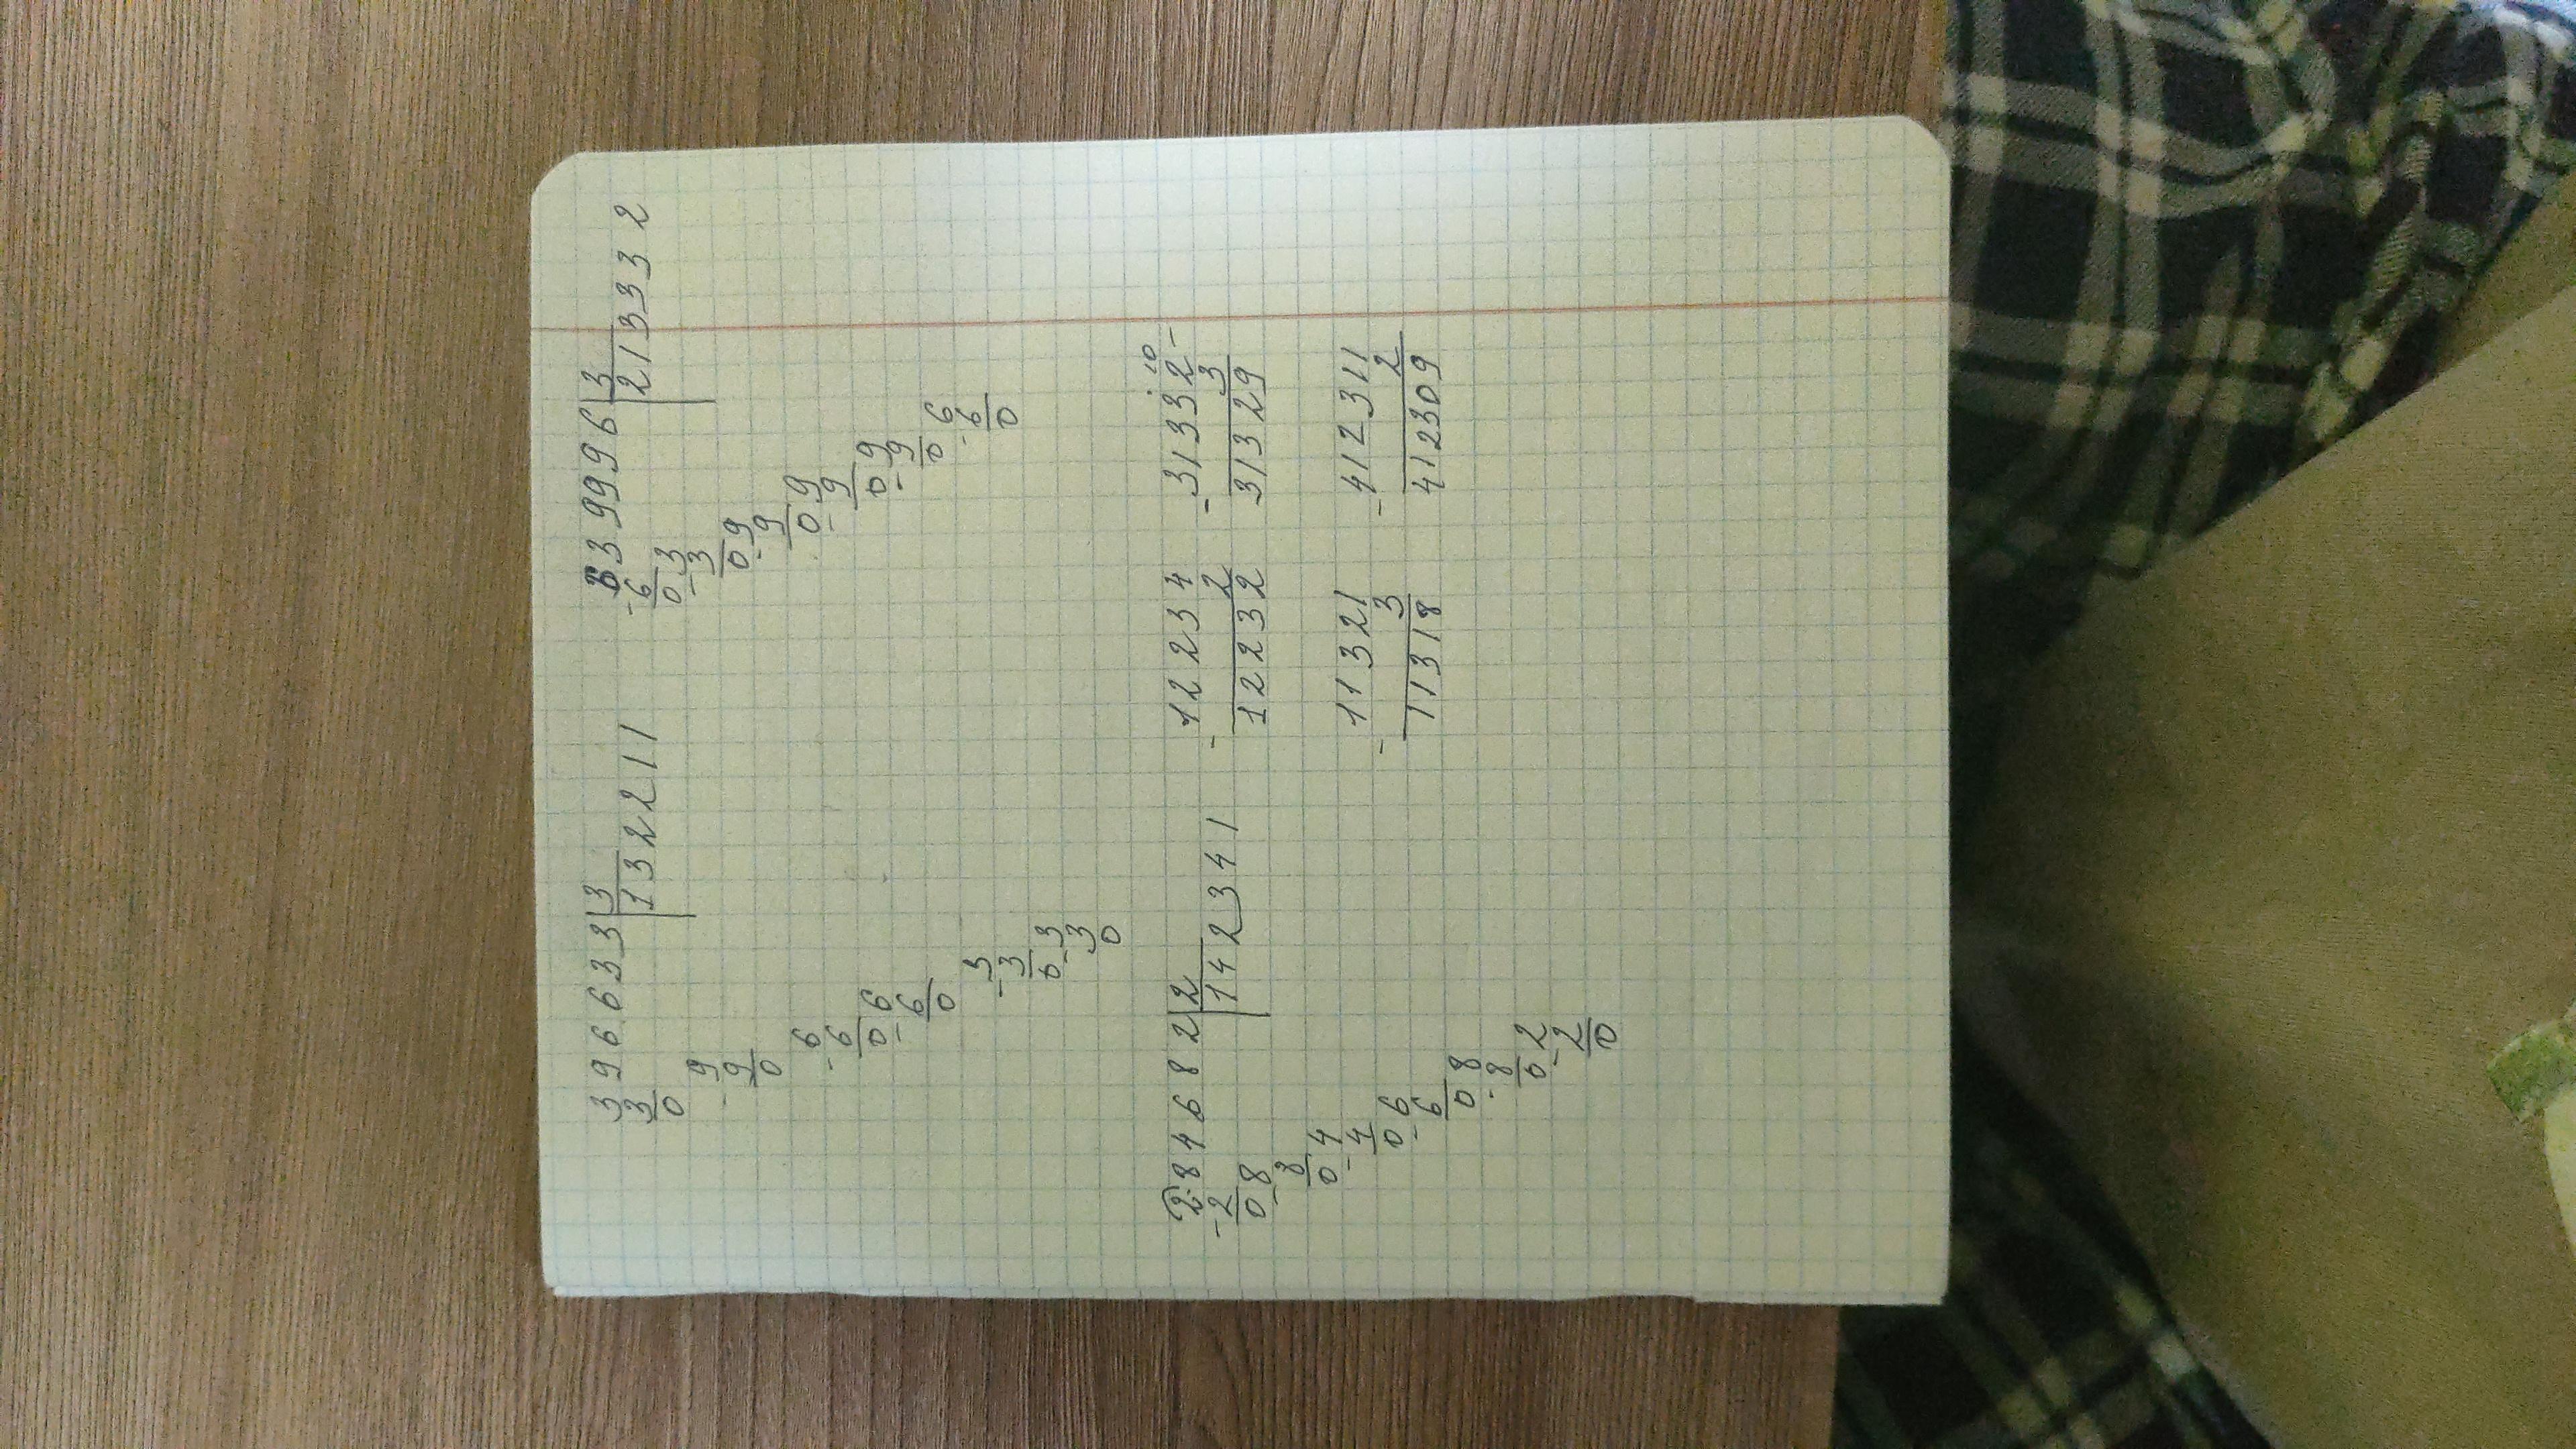 396633 |3
3 132211
0
-9
9
0
-6
6
0 6
-6
0
-3
3
0 3
-3
0
639996 |3
-6 213332
0 3
-3
0 9
-9
0 9
-9
0 9
-9
0 6
-6
0
284682 |2
-2 142341
0 8
-8
0 4
-4
0 6
-6
0 8
-8
0 2
-2
0
-12234
2
12232
-31332
3
31329
-11321
3
11318
-412311
2
412309